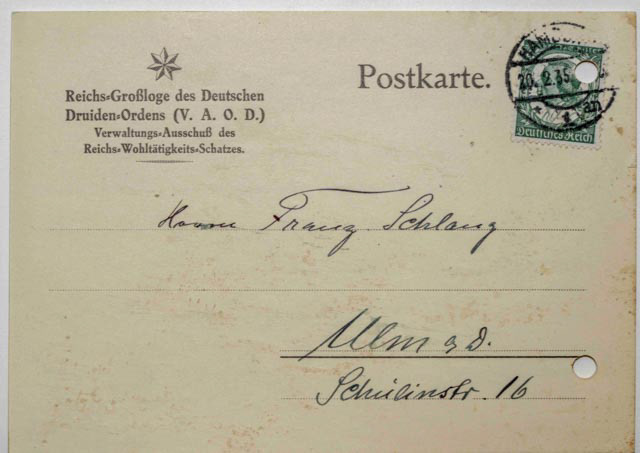 Reichs=Großloge des Deutschen
Druiden=Ordens (V. A. O. D.)
Verwaltungs=Ausschuß des
Reichs=Wohltätigkeits=Schatzes.
Postkarte.
HAMBUR
20.12.35
Deutsches Reich
Herrn Franz Schlang
Ulm a D.
Schülinstr. 16